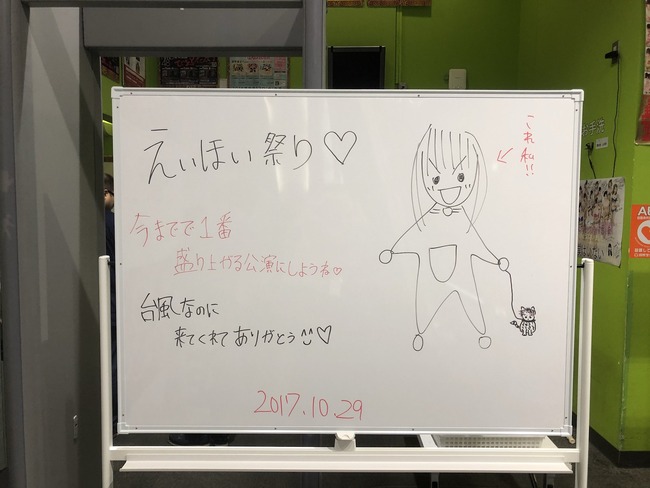 えいほい祭り♡
これ私!!
今までで1番
盛り上がる公演にしようね♡
台風なのに
来てくれてありがとう♡
2017.10.29
お手洗
AE